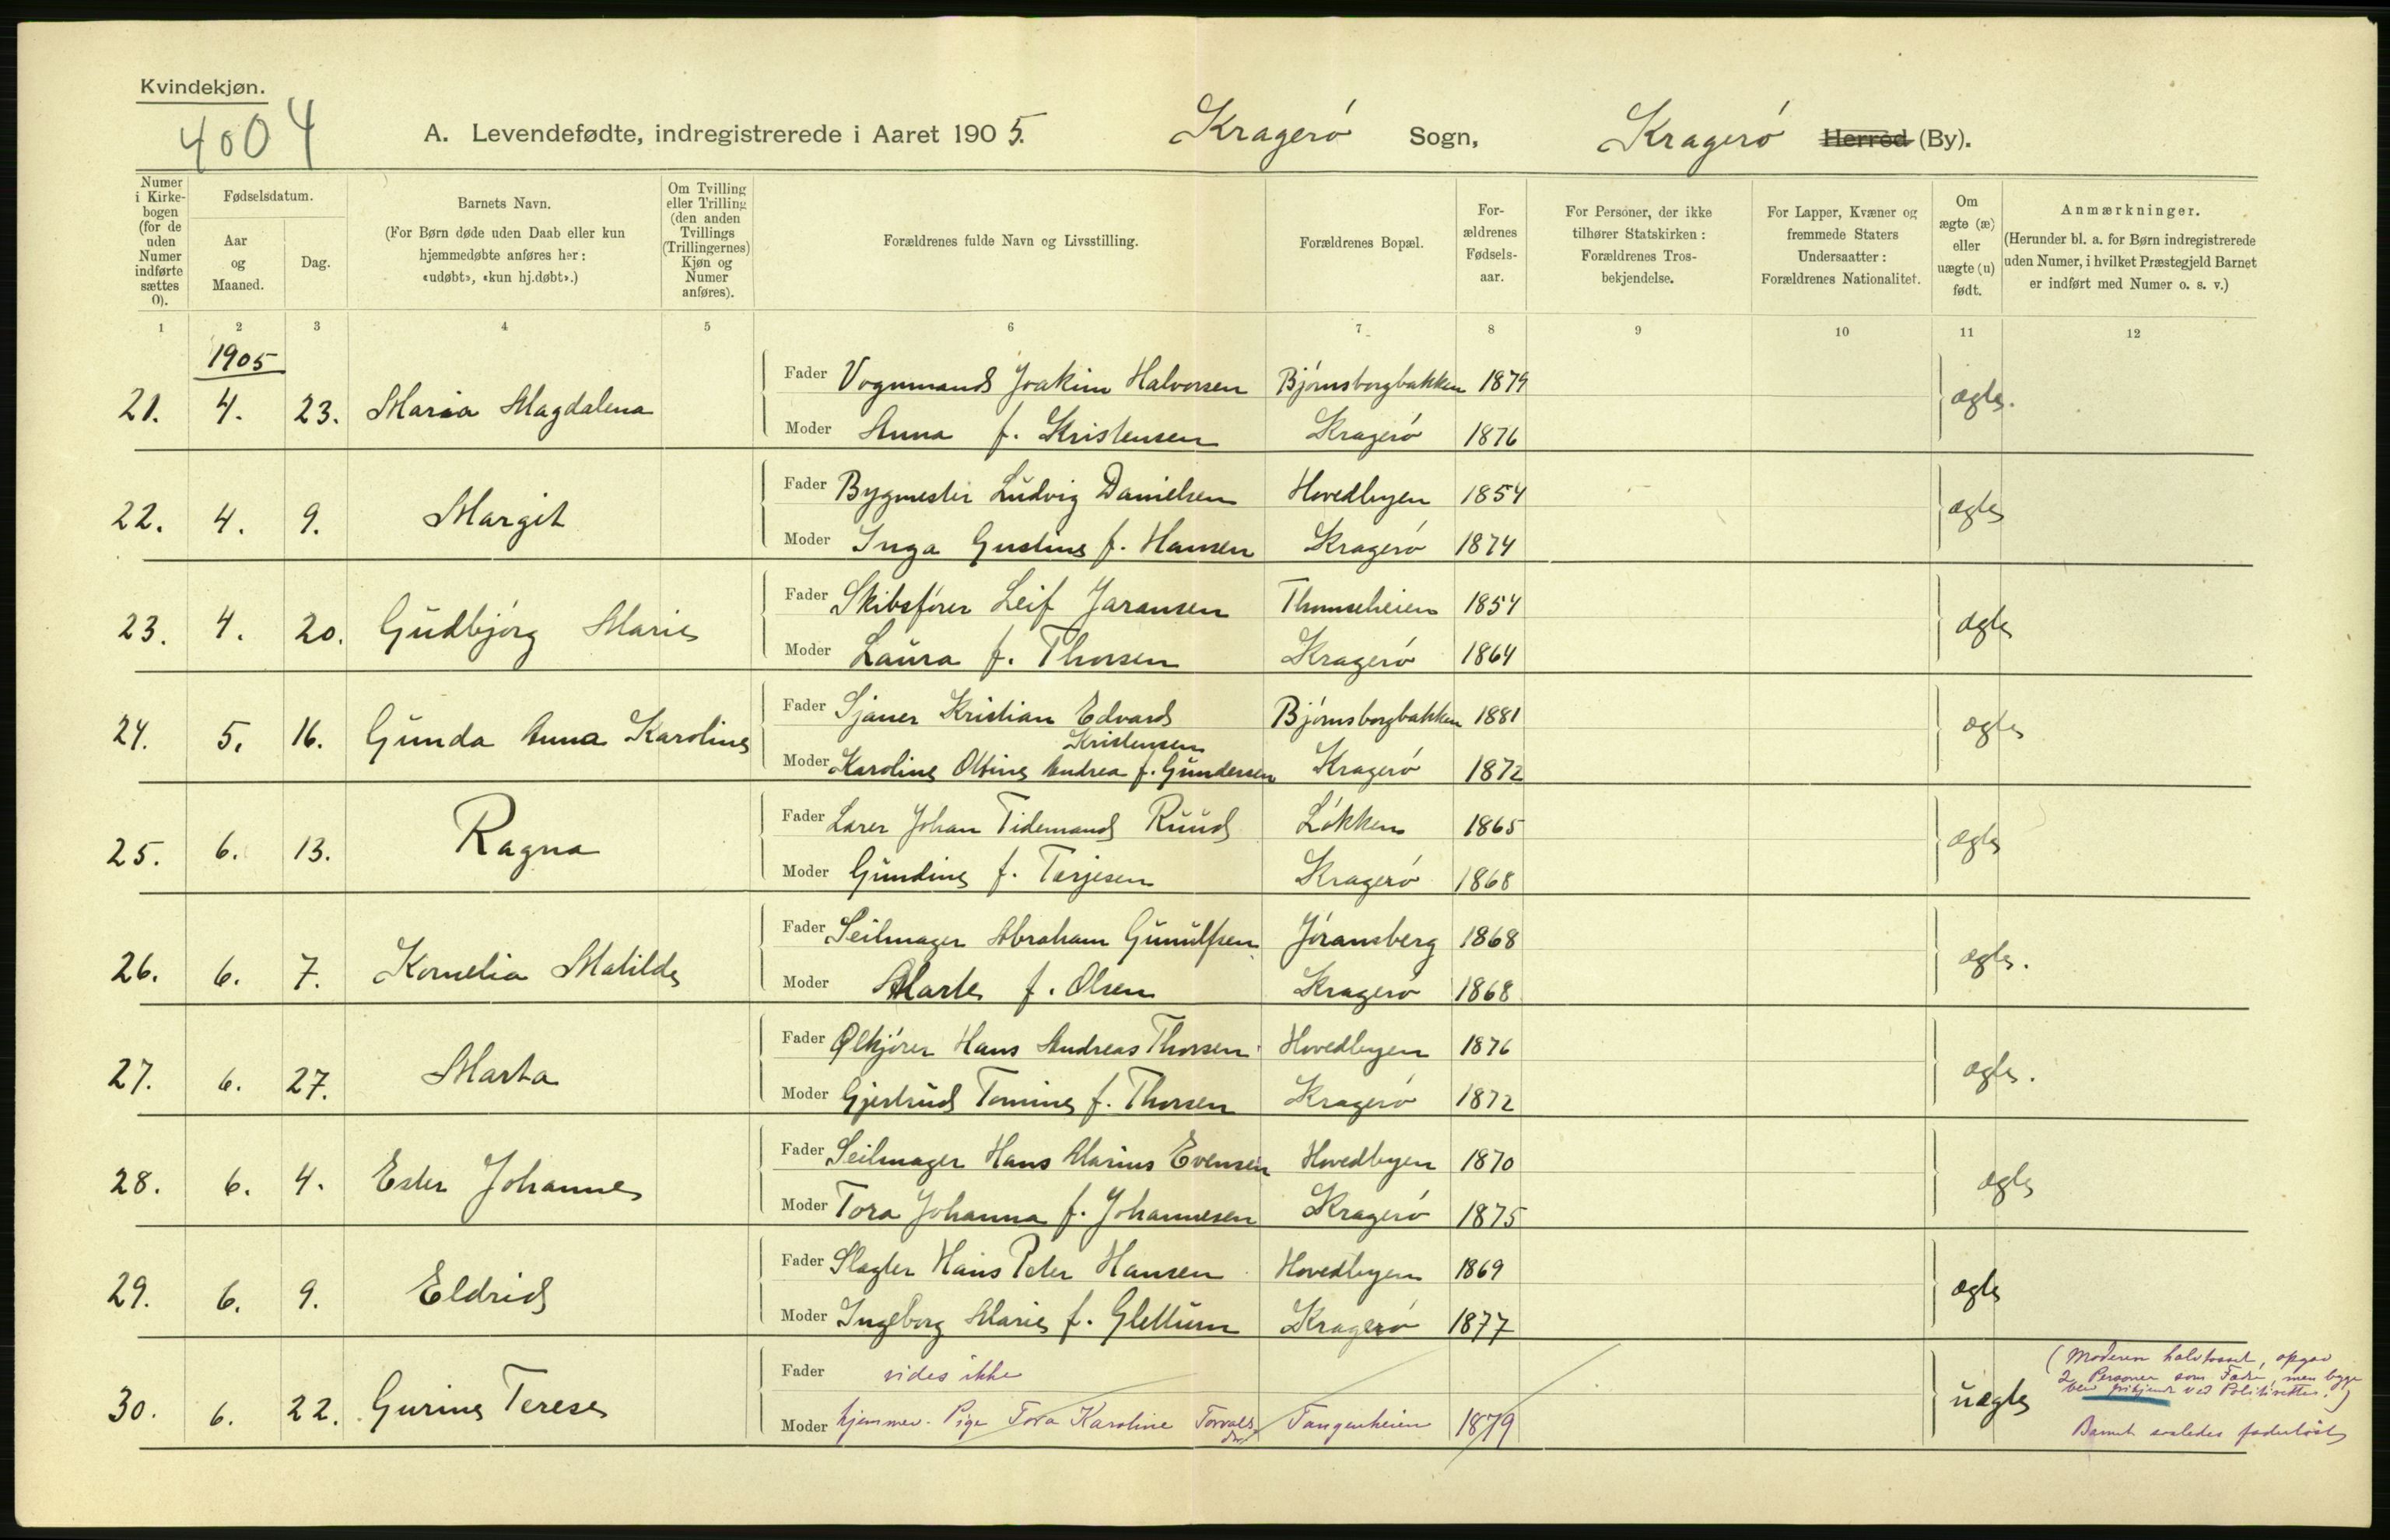 Kvindekjøn.
4004
A. Levendefødte, indregistrerede i Aaret 1905. Kragerö Sogn, Kragerö Herred (By).
Numer i Kirkebogen (for de uden Numer indførte sættes 0).
Fødselsdatum.
Aar og Maaned.
Dag.
Barnets Navn.
(For Børn døde uden Daab eller kun hjemmedøbte anføres her: «udøbt», «kun hj.døbt».)
Om Tvilling eller Trilling (den anden Tvillings (Trillingernes) Kjøn og Numer anføres).
Forældrenes fulde Navn og Livsstilling.
Forældrenes Bopæl.
Forældrenes Fødselsaar.
For Personer, der ikke tilhører Statskirken: Forældrenes Trosbekjendelse.
For Lapper, Kvæner og fremmede Staters Undersaatter: Forældrenes Nationalitet.
Om ægte (æ) eller uægte (u) født.
Anmærkninger.
(Herunder bl. a. for Børn indregistrerede uden Numer, i hvilket Præstegjeld Barnet er indført med Numer o. s. v.)
1 2 3 4 5 6 7 8 9 10 11 12
1905
21. 4. 23. Maria Magdalena Fader Vognmand Joakim Halvorsen Björnsborgbakken 1879 ægte.
Moder Anna f. Kristensen Kragerö 1876
22. 4. 9. Margit Fader Bygmester Ludvig Danielsen Hovedbyen 1854 ægte
Moder Inga Gustine f. Hansen Kragerö 1874
23. 4. 20. Gudbjörg Marie Fader Skibsförer Leif Jaransen Thomseheien 1854 ægte
Moder Laura f. Thorsen Kragerö 1864
24. 5. 16. Gunda Anna Karoline Fader Sjauer Kristian Edvard Kristensen Björnsborgbakken 1881 ægte
Moder Karoline Olsine Andrea f. Gundersen Kragerö 1872
25. 6. 13. Ragna Fader Lærer Johan Tidemand Ruud Lökken 1865 ægte
Moder Gundine f. Terjesen Kragerö 1868
26. 6. 7. Kornelia Matilde Fader Seilmager Abraham Gunulfsen Jöransberg 1868 ægte.
Moder Marte f. Olsen Kragerö 1868
27. 6. 27. Marta Fader Ølkjörer Hans Andreas Thorsen Hovedbyen 1876 ægte.
Moder Gjertrud Tomine f. Thorsen Kragerö 1872
28. 6. 4. Ester Johanne Fader Seilmager Hans Marius Evensen Hovedbyen 1870 ægte
Moder Tora Johanna f. Johannesen Kragerö 1875
29. 6. 9. Eldrid Fader Slagter Hans Peter Hansen Hovedbyen 1869 ægte
Moder Ingeborg Marie f. Glettum Kragerö 1877
30. 6. 22. Gurine Terese Fader vides ikke uægte
Moder hjemmev. Pige Tora Karoline Torvalsdr Tangenheien 1879
(Moderen halvtosset, opgav
2 Personer som Fader, men begge
blev frikjendt ved Politiretten.)
Barnet saaledes faderlöst